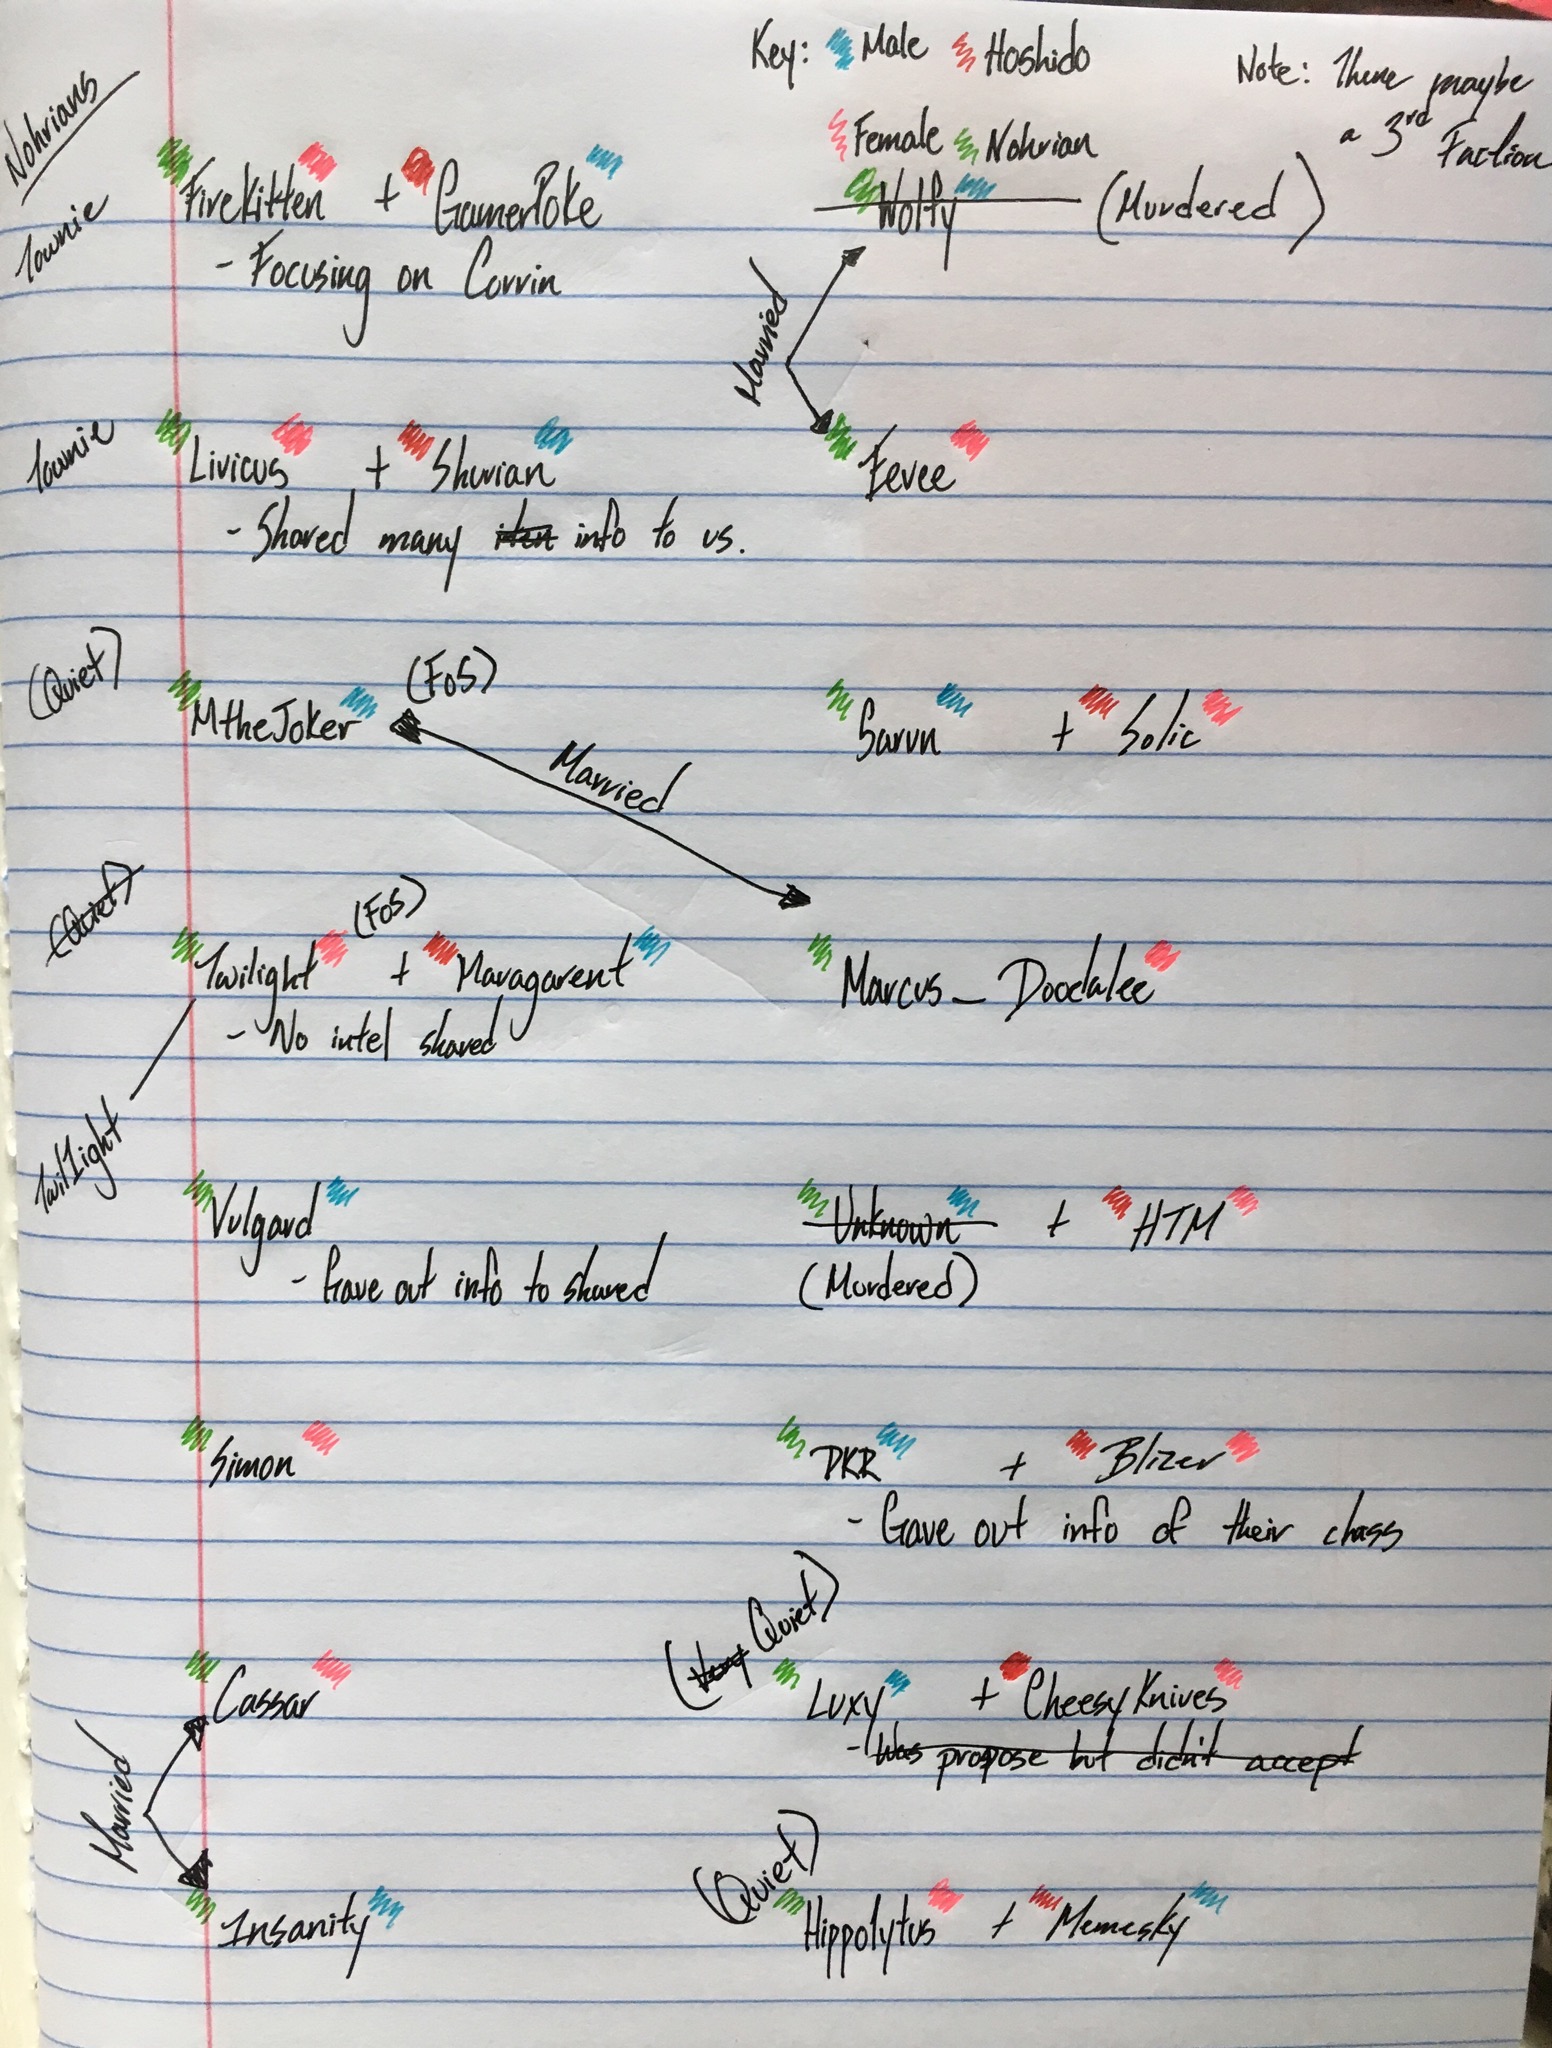 Key: Male Hoshido
Female Nohrian
Note: There maybe
a 3rd Faction
Nohrians
Townie
FireKitten + GamerPoke
- Focusing on Corrin
Wolfy (Murdered)
Married
Eevee
Townie
Livicus + Shurian
- Shared many info to us.
(Quiet)
MtheJoker (FoS)
Married
Sarun + Solic
(Quiet)
Twilight (FoS) + Maragarent
- No intel shared
Marcus_Doodalee
Twil1ght
Vulgard
- Gave out info to shared
Unknown + HTM
(Murdered)
Simon
DKR + Blizer
- Gave out info of their class
Cassar
(Very Quiet)
Luxy + CheesyKnives
- Was propose but didn't accept
Married
Insanity
(Quiet)
Hippolytus + Memesky